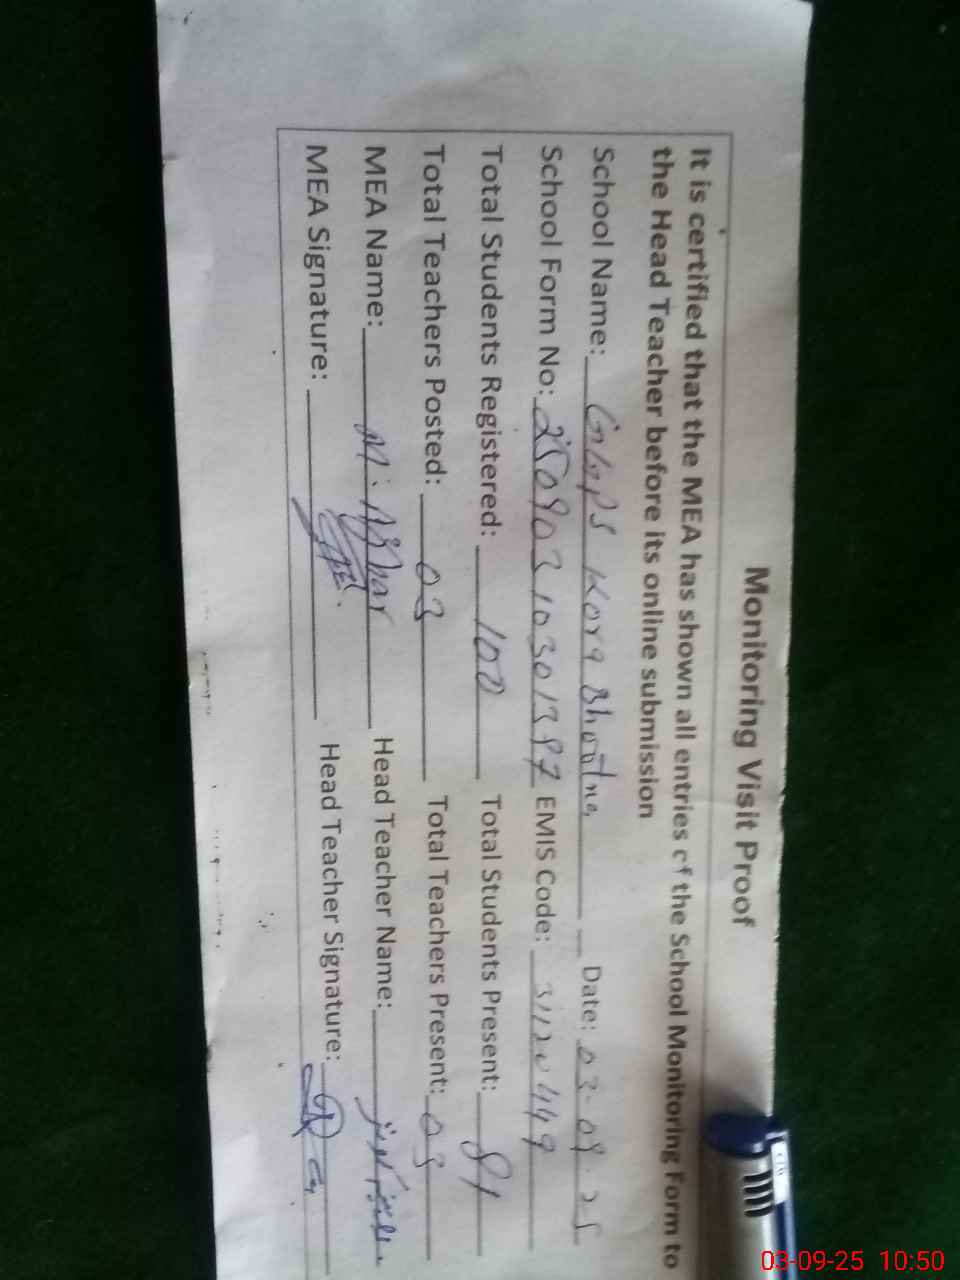 Monitoring Visit Proof
It is certified that the MEA has shown all entries of the School Monitoring Form to
the Head Teacher before its online submission
School Name: GGPS Kora Bhootna Date: 03-09-25
School Form No: EMIS Code: 31120449
Total Students Registered: 100 Total Students Present: 81
Total Teachers Posted: 03 Total Teachers Present: 03
MEA Name: M. Azhar Head Teacher Name:
MEA Signature: Head Teacher Signature:
03-09-25 10:50